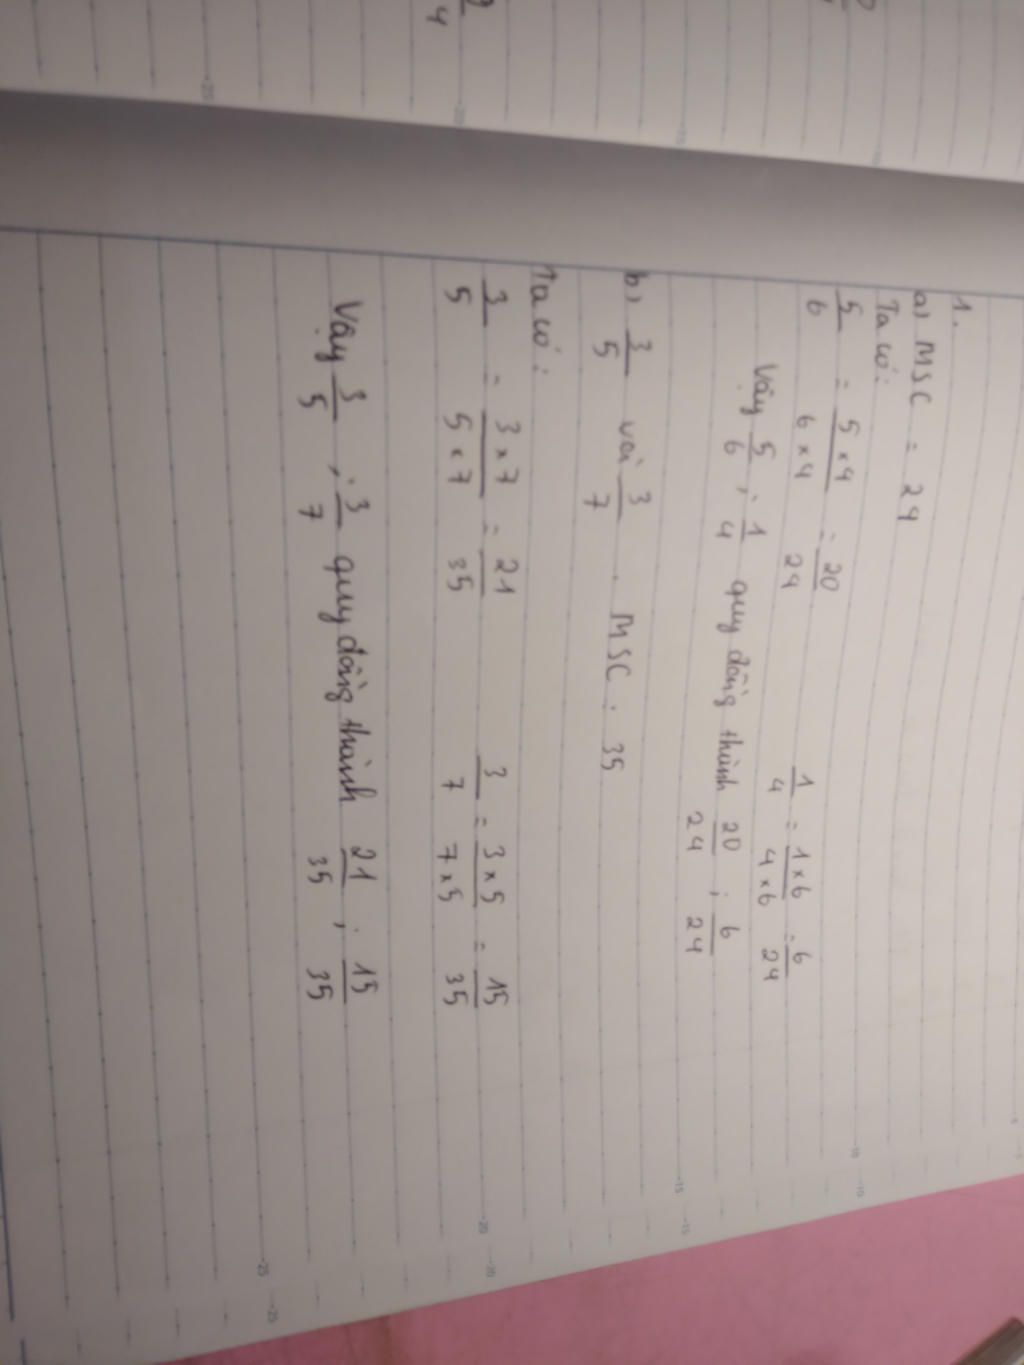 1.
a) MSC = 24
Ta có:
5/6 = 5 x 4/6 x 4 = 20/24 1/4 = 1 x 6/4 x 6 = 6/24
Vậy 5/6 ; 1/4 quy đồng thành 20/24 ; 6/24
b) 3/5 với 3/7 . MSC : 35
Ta có :
3/5 = 3 x 7/5 x 7 = 21/35 3/7 = 3 x 5/7 x 5 = 15/35
Vậy 3/5 ; 3/7 quy đồng thành 21/35 ; 15/35